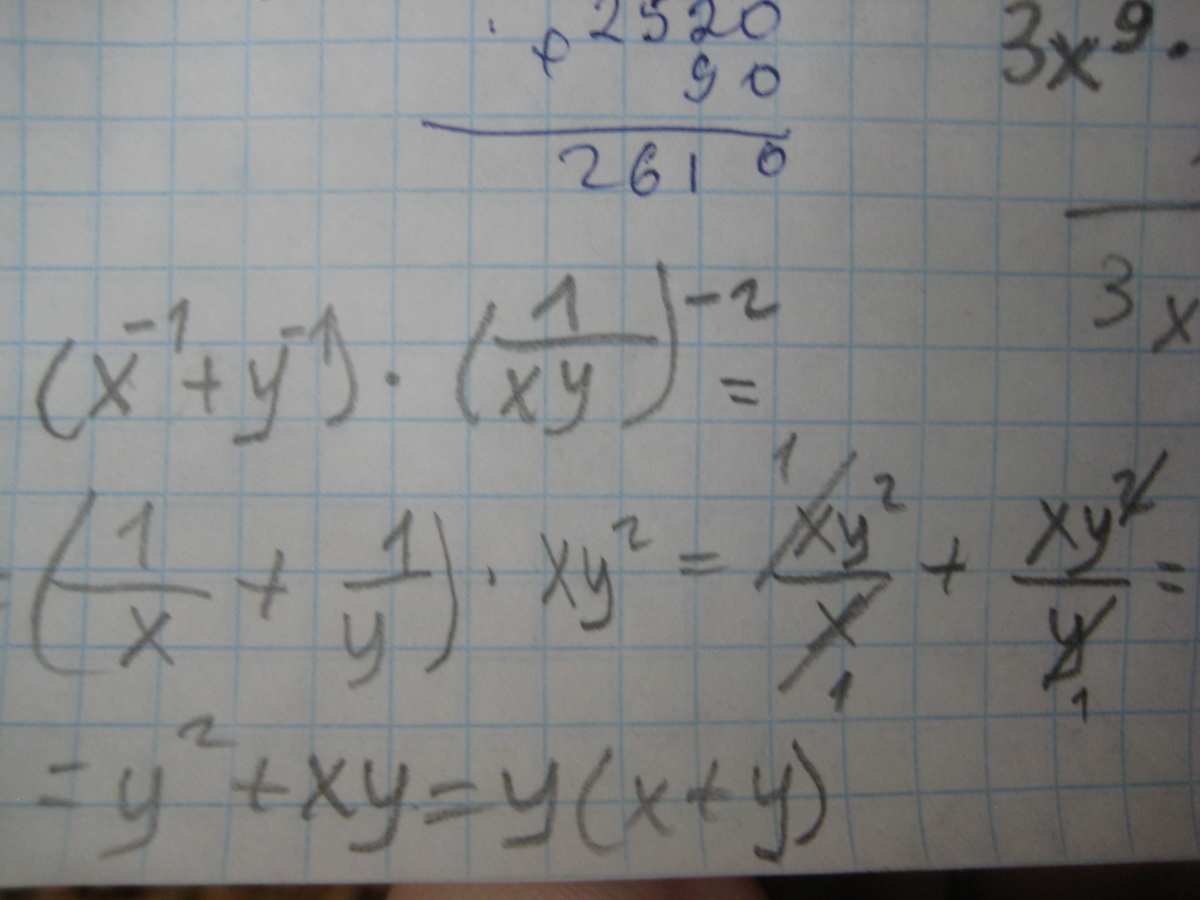 + 2520
90
2610
3x⁹ ·
3x
(x⁻¹ + y⁻¹) · (1/xy)⁻² =
= (1/x + 1/y) · xy² = xy²/x + xy²/y =
= y² + xy = y(x + y)